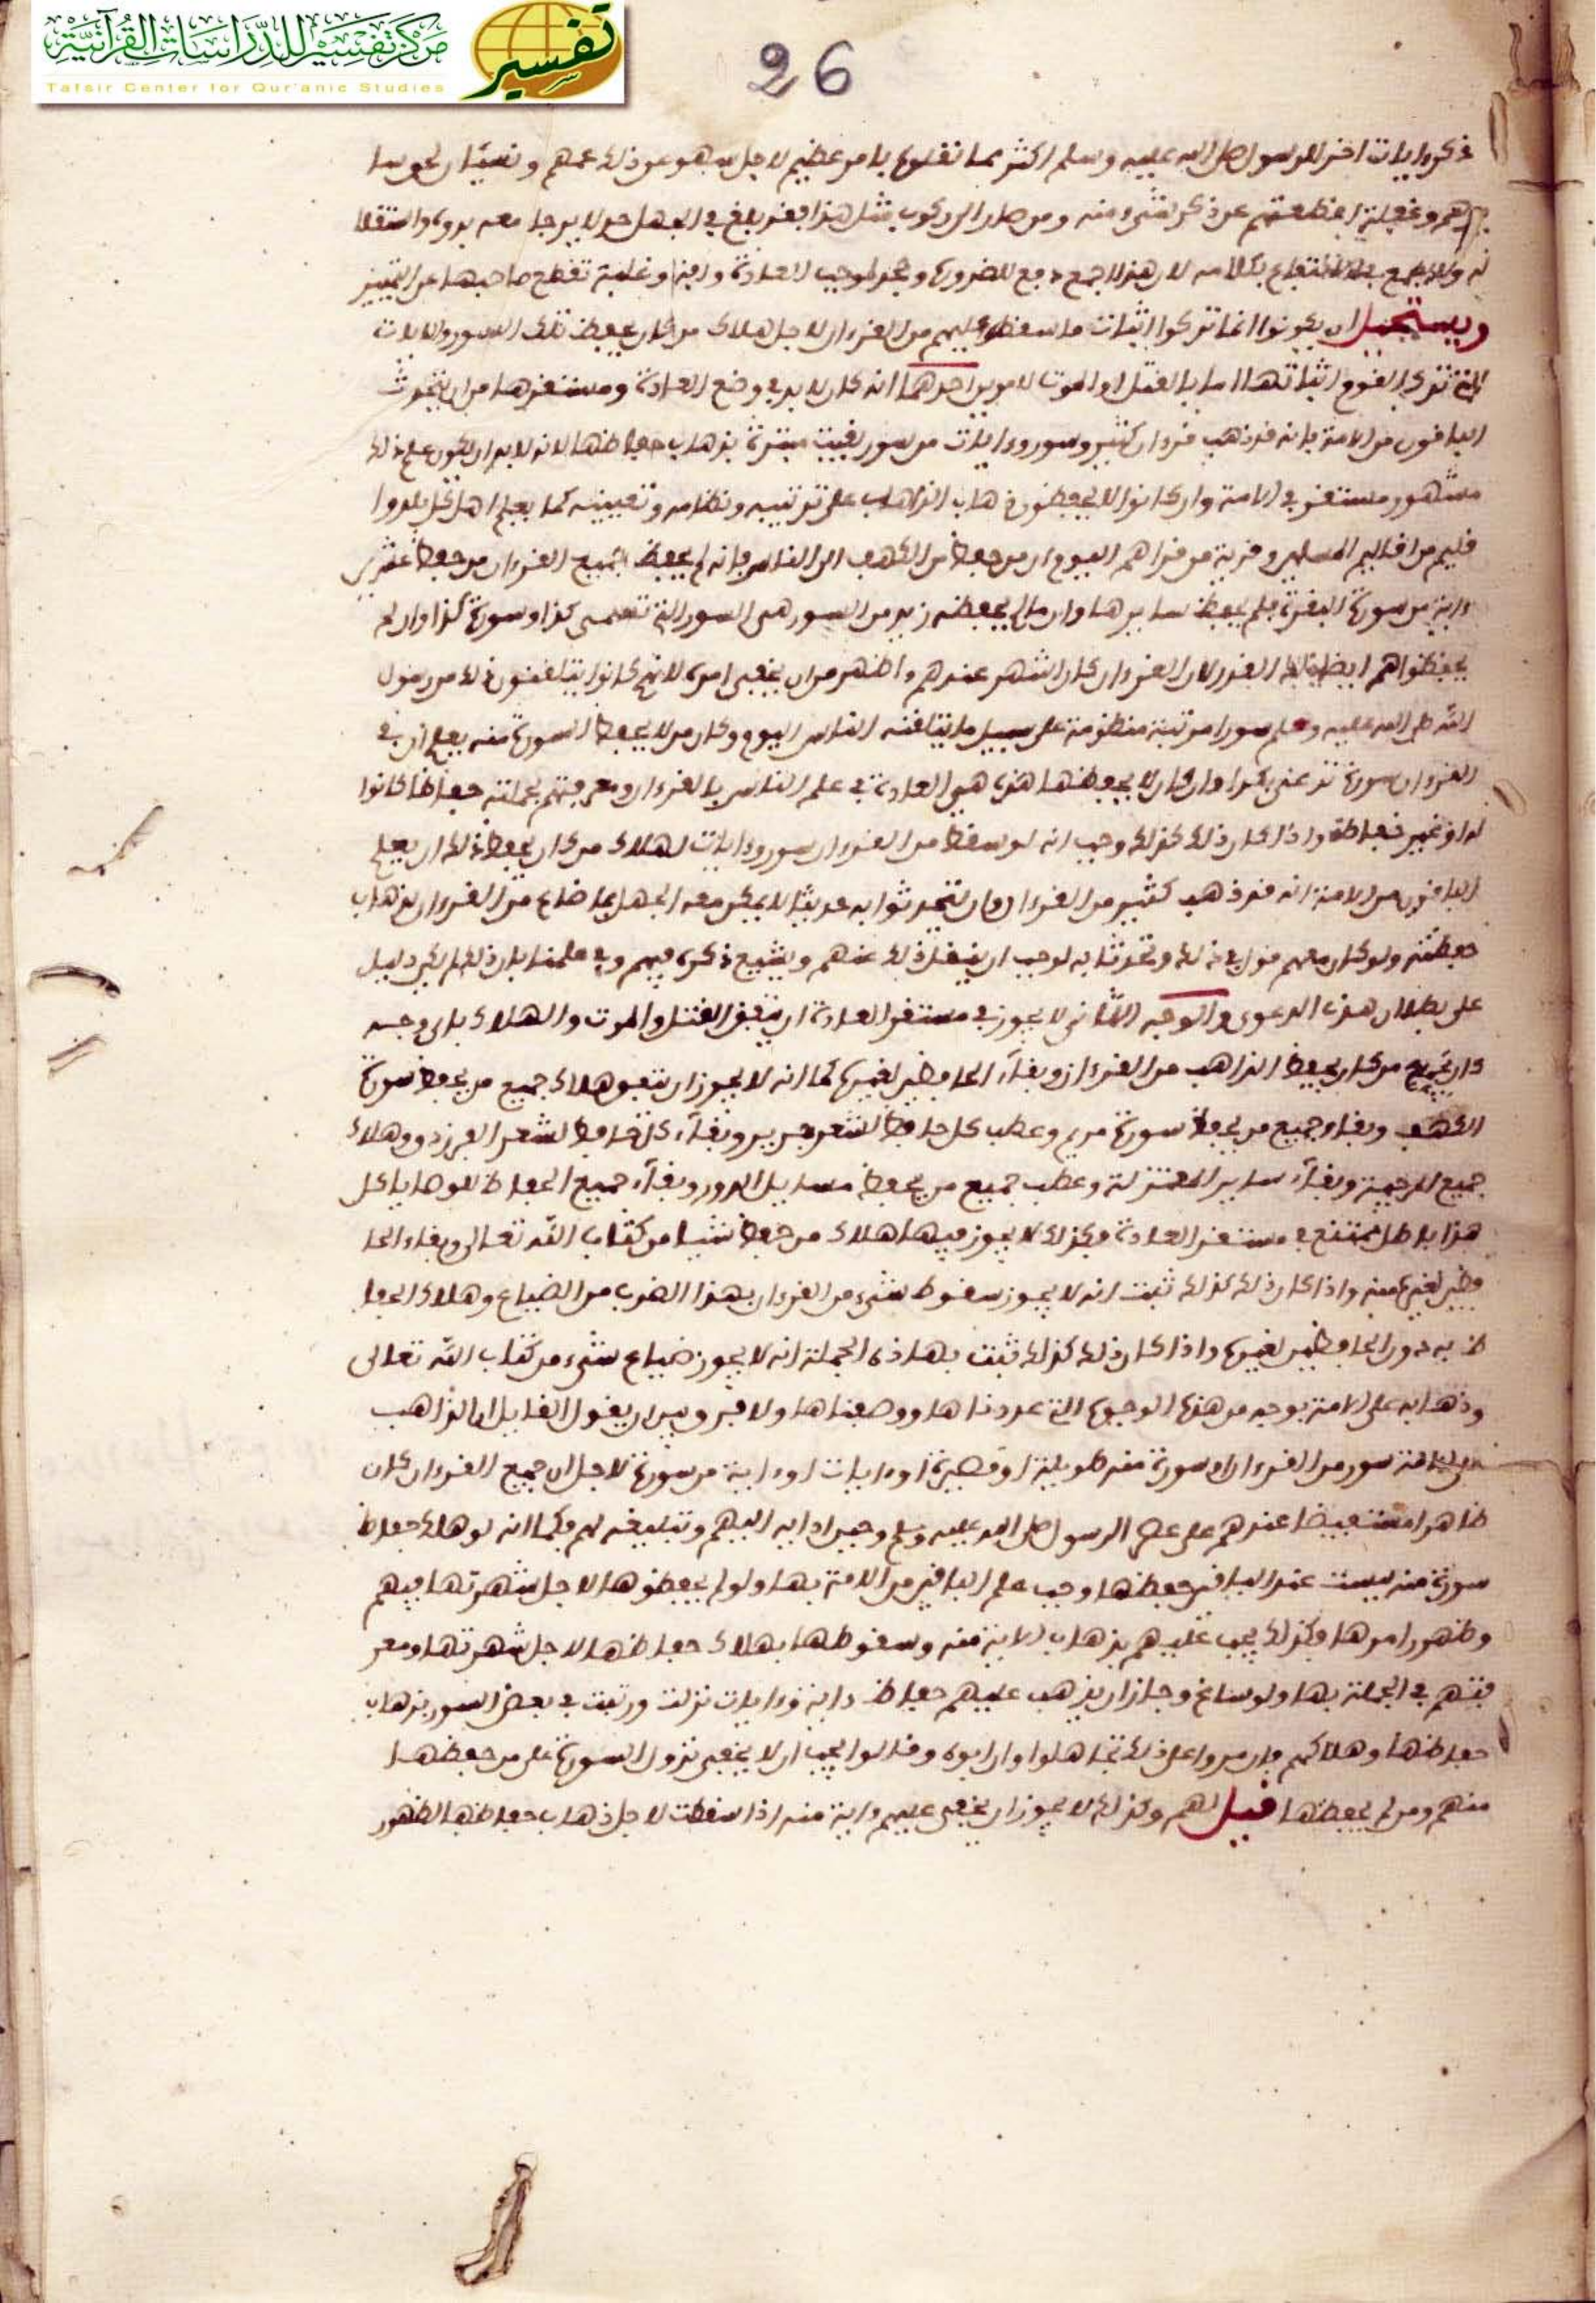 مركز تفسير للدراسات القرآنية
تفسير
Tafsir Center for Qur'anic Studies
26
ذكره ايات اخر للرسول صلى الله عليه وسلم اكثر مما نقلوه بامر عظيم لاجل سهو عن ذلك عمهم ونسيان لحق سا
وغفلة اقتطعتهم عن ذكر شيء منه ومن صار الى ركوب مثل هذا فقد بلغ في الجهل حد لا يرجا معه برؤه واستقلا
له ولا يطمع في الانتفاع بكلامه لان هذا جمع دفع للضرورة وجحد لموجب العادة وافة وغلبة تقطع صاحبها عن التمييز
ويستحيل ان يكونوا انما تركوا اثبات ما سقط عليهم من القرءان لاجل هلاك من كان يحفظ تلك السور والايات
التي ترك القوم اثباتها اما بالقتل او الموت لامرين احدهما انه كان لا بد في وضع العادة ومستقرها من ان يتحدث
الباقون من الامة بانه قد ذهب قرءان كثير وسور وءايات من سور بقيت مبترة بذهاب حفاظها لانه لا بد ان يكون علم ذلك
مشهور مستقر في الامة وان كانوا لا يحفظون ذهاب الذاهب على ترتيبه ونظامه وتعيينه كما يعلم اهل كل بلد وا
قليم من اقاليم المسلمين وقرية من قراهم اليوم ان من حفظ من الكهف الى الناس فانه لم يحفظ جميع القرءان من حفظ عشرين
ءاية من سورة البقرة فلم يحفظ سايرها وان ما لم يحفظه زيد من السور هي السور التي تسمى كذا وسورة كذا وان لم
يحفظوا هم ايضا ذلك القدر لان القرءان كان اشهر عندهم واظهر من ان يخفى امره لانهم كانوا يتلقفون ذلك من رسول
الله صلى الله عليه وسلم سورا مرتبة منظومة على سبيل ما يتلقنه الناس اليوم وكان من لا يحفظ السورة منه يعلم ان في
القرءان سورة تدعى بكذا وان كان لا يحفظها هذه هي العادة في علم الناس بالقرءان ومعرفتهم بجملته حفاظا كانوا
له او غير حفاظه واذا كان ذلك كذلك وجب انه لو سقط من القرءان سور وءايات لهلاك من كان يحفظ ذلك ان يعلم
الباقون من الامة انه قد ذهب كثير من القرءان وان يتحدثوا به حديثا لا يمكن معه الجهل بما ضاع من القرءان بذهاب
حفظته ولو كان منهم قول في ذلك وتحدثا به لوجب ان ينقل ذلك عنهم ويشيع ذكره فيهم وفي علمنا بان ذلك لم يكن دليل
على بطلان هذه الدعوى والوجه الثاني لا يجوز في مستقر العادة ان يتفق القتل والموت والهلاك باي وجه
كان لجميع من كان يحفظ الذاهب من القرءان وبقاء الحافظين لغيره كما انه لا يجوز ان يتفق هلاك جميع من يحفظ سورة
الكهف وبقاء جميع من يحفظ سورة مريم وعطب كل حافظ لشعر جرير وبقاء كل حافظ لشعر الفرزدق وهلاك
جميع المرجية وبقاء ساير المعتزلة وعطب جميع من يحفظ مسايل الدور وبقاء جميع الحفاظ للوصايا كل
هذا باطل ممتنع في مستقر العادة فكذلك لا يجوز فيها هلاك من حفظ شيئا من كتاب الله تعالى وبقاء الحا
فظين لغيره منه واذا كان ذلك كذلك ثبت انه لا يجوز سقوط شيء من القرءان بهذا الضرب من الضياع وهلاك الحفا
ظ به دون الحافظين لغيره واذا كان ذلك كذلك ثبت بهاذه الجملة انه لا يجوز ضياع شيء من كتاب الله تعالى
وذهابه على الامة بوجه من هذه الوجوه التي عددناها ووصفناها ولا فرق بين ان يقول القايل ان الذاهب
على الامة سور من القرءان او سورة منه طويلة او قصيرة او ءايات او ءاية من سورة لاجل ان جميع القرءان كان
ظاهرا مستفيضا عندهم على عهد الرسول صلى الله عليه وسلم وحين ادايه اليهم وتبليغه لهم فكما انه لو هلك حفاظ
سورة منه ليست عند الباقين حفظها وجب علم الباقين من الامة بها ولو لم يحفظوها لاجل شهرتها فيهم
وظهور امرها وكذلك يجب عليهم بذهاب الاية منه وسقوطها بهلاك حفاظها لاجل شهرتها ومعر
فتهم في الجملة بها ولو ساغ وجاز ان يذهب عليهم حفاظ ءاية وءايات نزلت ورتبت في بعض السور بذهاب
حفاظها وهلاكهم فان مروا على ذلك تجاهلوا وان ابوه وقالوا يجب ان لا يخفى نزول السورة على من حفظها
منهم ومن لم يحفظها قيل لهم وكذلك لا يجوز ان يخفى عليهم ءاية منه اذا سقطت لاجل ذهاب حفاظها لظهور